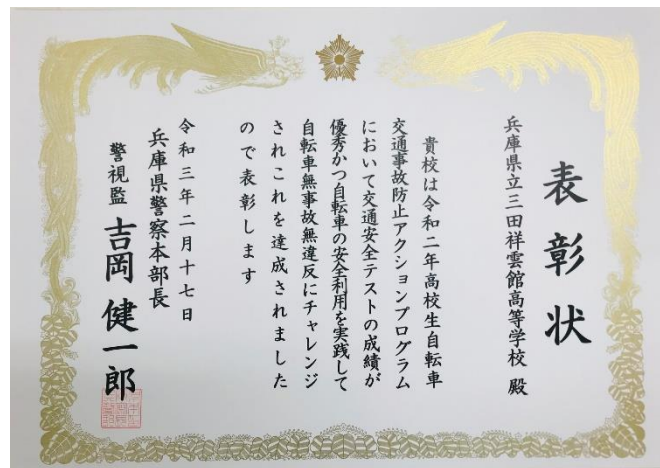 表彰状
兵庫県立三田祥雲館高等学校 殿
貴校は令和二年高校生自転車
交通事故防止アクションプログラム
において交通安全テストの成績が
優秀かつ自転車の安全利用を実践して
自転車無事故無違反にチャレンジ
されこれを達成されました
ので表彰します
令和三年二月十七日
兵庫県警察本部長
警視監 吉岡健一郎